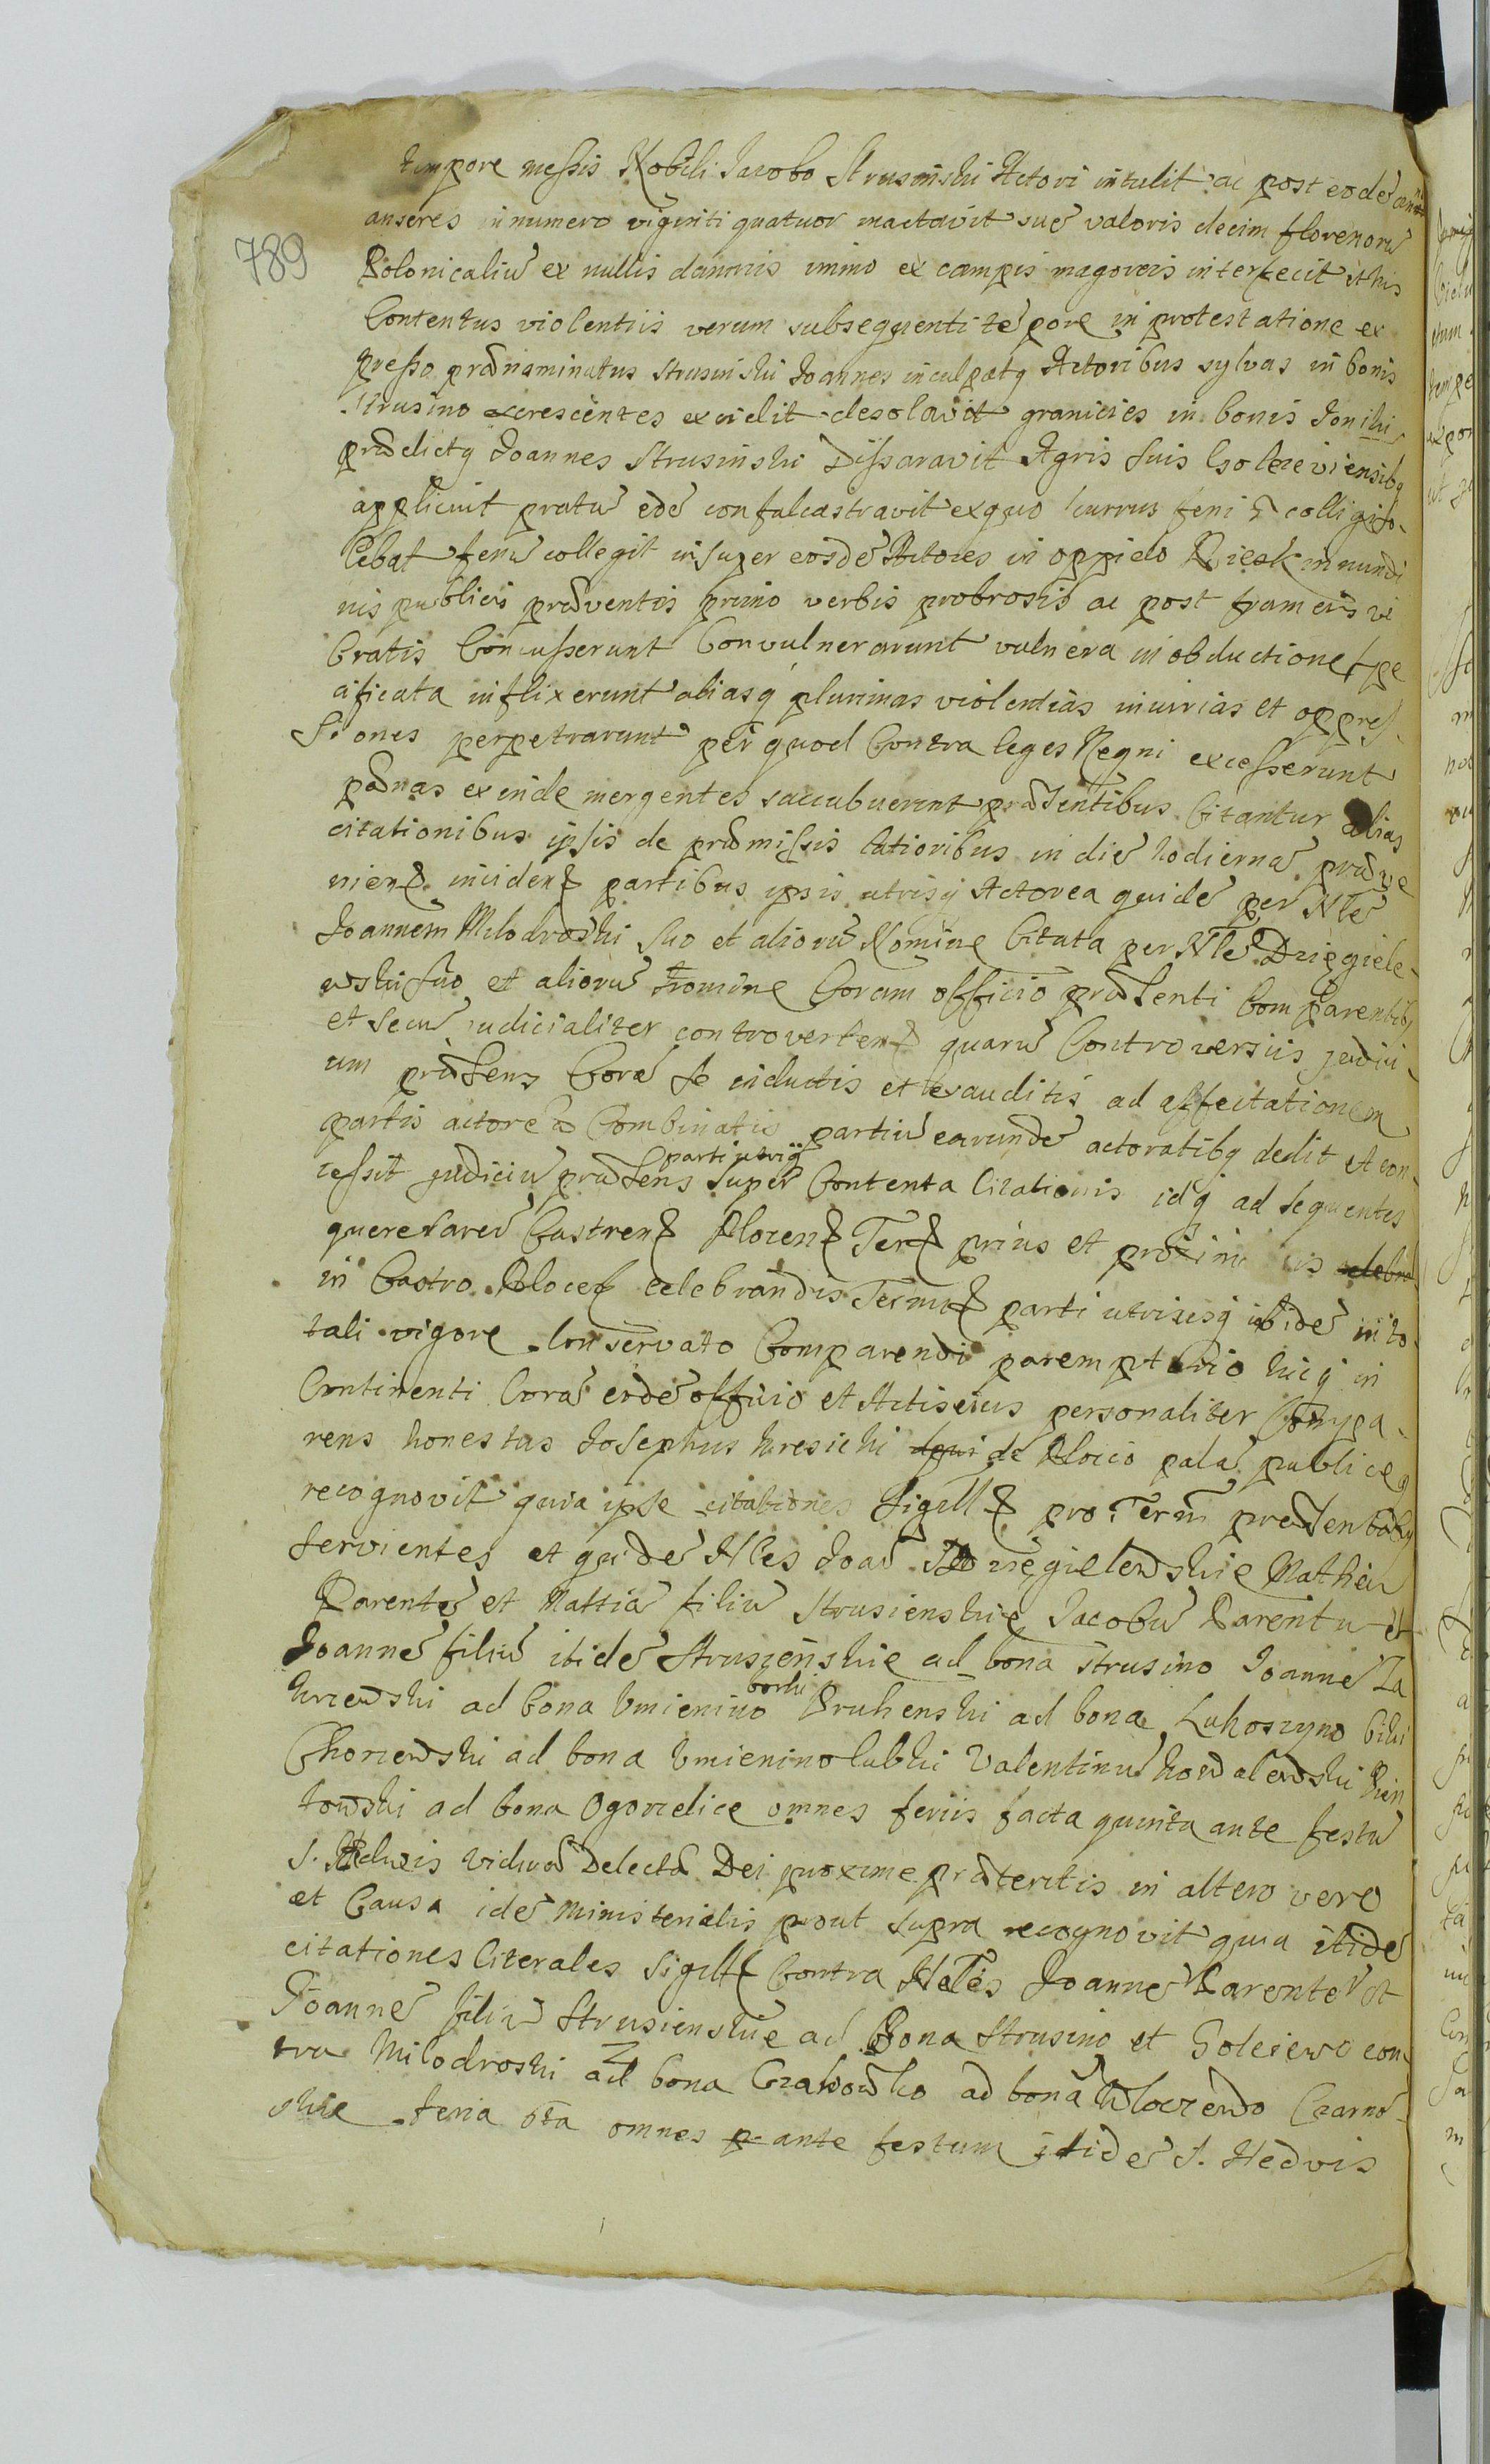 789
tempore messis Nobili Jacobo Strusinski Actori intulit ac post eodē
anseres in numero viginti quatuor mactavit sue valoris decim florenorū
Polonicaliū ex nullis damnis immo ex campis interfecit
Contentus violentiis verum subsequenti tēpore in protestatione ex
presso prænominatus Strusinski Joannes inculpatq Actoribus sylvas in bonis
Strusino excrescentes excidit desolavit granicies in bonis
prædictq Joannes Strusinski Dissaravit Agris suis
applicuit pratū edē confalcastravit ex quo currus feni 5 colligi so-
lebat fenū collegit insuper eosdē Actores in oppido in nundi
nis publicis præventis primo verbis probrosis ac post frameis vi
bratis Concusserunt Convulnerarunt vulnera in obductione spe
cificata inflixerunt aliasq plurimas violentias iniurias et oppres-
siones perpetrarunt per quod Contra leges Regni excesserunt
pœnas exinde mergentes succubuerunt præsentibus Citantur alias
citationibus ipsis de præmissis latioribus in diē hodiernā præve
nienℓ incidenℓ partibus ipsis utrisq Actorea quidē per Nlē
Joannem Milodroski suo et aliorū Nomine Citata per Nlē Dzięgiele-
wski suo et aliorū nomine Coram officio præsenti Comparentibq
et secū iudicialiter controvertenℓ quarū Controversiis judici-
um præsens Corā se inductis et exauditis ad affectationem
partis actoreæ Combinatis partiū earundē actoratibq dedit et con-
parti utriq
cessit judiciū præsens super Contenta Citationis idq ad sequentes
querelares Castrenℓ Plocenℓ Terℓ prius et proxim
in Castro Plocenℓ celebrandis Termℓ parti utrisq ibidē in to-
tali vigore Conservato Comparendi paremptorio hicq in
Continenti Corā eidē officio et Actis eius personaliter Compa-
rens honestus Josephus Kresicki de Plocio palā publiceq
recognovit quia ipse citationes Sigillℓ pro Term præsentibq
servientes et quidē Nles Joaū Dzięgielewskie Mathiū
Parentē et Mattiā filiū Strusienskie Jacobū Parentū et
Joannē filiū itidē Strusienskie ad bona Strusino Joannē Za
borski
krzewski ad bona Umienino Bruhenski ad bona Lukoszyno biki
Chorzewski ad bona Umienino lubki Valentinū Kowalewski
towski ad bona Ogorzelice omnes feriis facta quinta ante festū
S. Hedwis viduæ Delectæ Dei proxime præteritis in altero vero
et Causa idē Ministerialis prout supra recognovit quia itidē
citationes literales Sigillℓ Contra Nles Joannē Parentē et
Joannē filiū Strusienskie ad Bona Strusino et Golejewo con-
tra Milodroski ad bona ad bona Wloczewo Czarno-
skie feria 6ta omnes ante festum itidē S. Hedvis